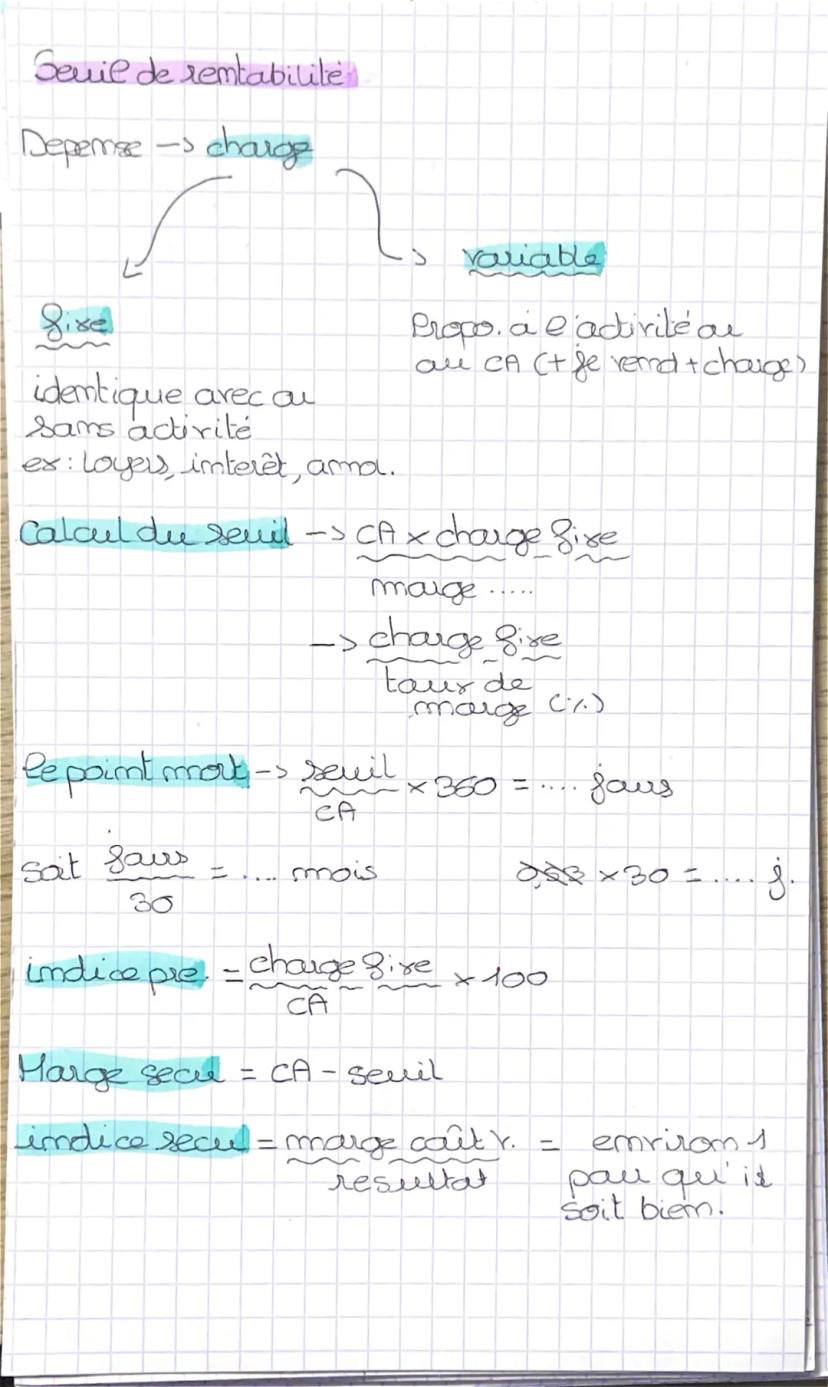 Seuil de rentabilité
Depense -> charge
variable
fixe
Propo. à l'activité ou
au CA (+ je vend + charge)
identique avec ou
sans activité
ex: loyers, interêt, amo.
Calcul du seuil -> CA x charge fixe
marge .....
-> charge fixe
taux de
marge (%)
le point mort -> seuil x 360 = .... jours
CA
soit jours = .... mois
x 30 = .... j.
30
indice pre. = charge fixe x 100
CA
Marge secu = CA - seuil
indice secu = marge coût v. = environ 1
resultat
pour qu'il
soit bien.